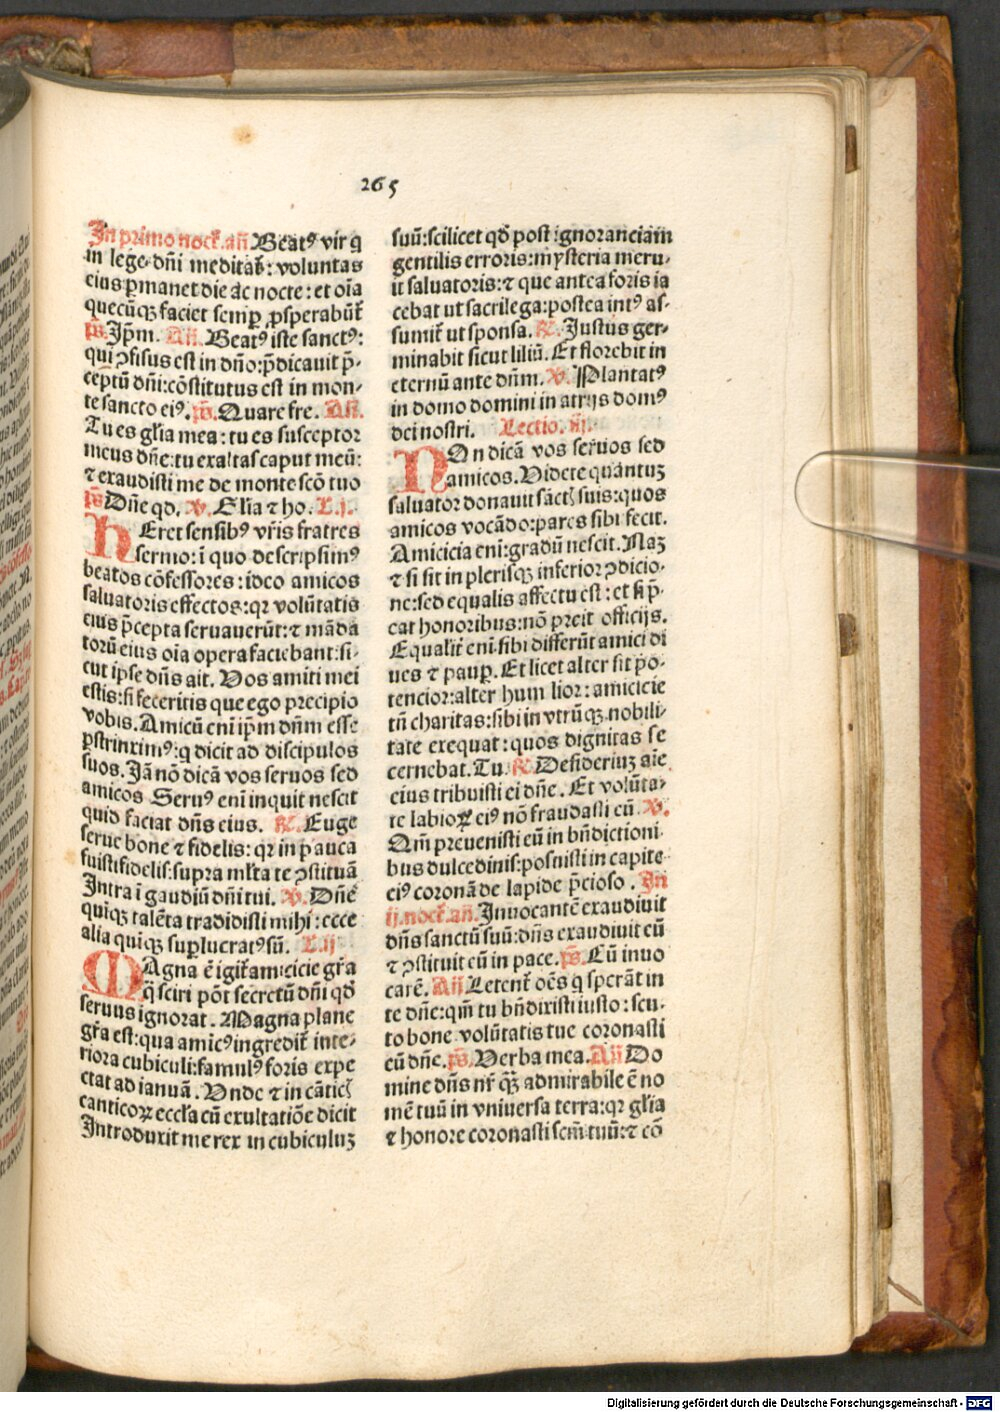 265
In primo noct̄. an̄. Beatꝰ vir q
in lege dn̄i meditat̄: voluntas
eius ꝑmanet die ac nocte: et oīa
quecūqꝫ faciet semꝑ ꝓsperabūt̄
p̄s. Ip̄m. An̄. Beatꝰ iste sanctꝰ:
qui ꝯfisus est in dn̄o: p̄dicauit p̄-
ceptū dn̄i: cōstitutus est in mon-
te sancto eiꝰ. p̄s. Quare fre. An̄.
Tu es gl̄ia mea: tu es susceptor
meus dn̄e: tu exaltas caput meū:
⁊ exaudisti me de monte scō tuo
p̄s Dn̄e qd. ℣. Gl̄ia ⁊ ho. L. j.
HEret sensibꝰ vr̄is fratres
sermo: ī quo descripsimꝰ
beatos cōfessores: ideo amicos
saluatoris effectos: qr volūtatis
eius p̄cepta seruauerūt: ⁊ māda
torū eius oīa opera faciebant: si-
cut ipse dn̄s ait. Vos amiti mei
estis: si feceritis que ego precipio
vobis. Amicū enī ip̄m dn̄m esse
ꝑstrinximꝰ: q dicit ad discipulos
suos. Jā nō dicā vos seruos sed
amicos Seruꝰ enī inquit nescit
quid faciat dn̄s eius. ℟. Euge
serue bone ⁊ fidelis: qr in pauca
fuisti fidelis: supra ml̄ta te ꝯstituā
Intra ī gaudiū dn̄i tui. ℣. Dn̄e
quīqꝫ talēta tradidisti mihi: ecce
alia quiqꝫ suꝑlucratꝰ sū. L. ij
MAgna ē igit̄ amicicie gr̄a
q̄ sciri pōt secretū dn̄i qđ
seruus ignorat. Magna plane
gr̄a est: qua amicꝰ ingredit̄ inte-
riora cubiculi: famulꝰ foris expe
ctat ad ianuā. Vnde ⁊ in cātic̄
canticoꝝ eccl̄a cū exultatiōe dicit
Introduxit me rex in cubiculuꝫ
suū: scilicet qđ post ignoranciam
gentilis erroris: mysteria meru-
it saluatoris: ⁊ que antea foris ia
cebat ut sacrilega: postea intꝰ as-
sumit̄ ut sponsa. ℟. Justus ger-
minabit sicut liliū. Et florebit in
eternū ante dn̄m. ℣. Plantatꝰ
in domo domini in atrijs domꝰ
dei nostri. Lectio. iij.
NOn dicā vos seruos sed
amicos. Videte quantuꝫ
saluator donauit sāct̄ suis: quos
amicos vocādo: pares sibi fecit.
Amicicia enī: gradū nescit. Naꝫ
⁊ si sit in plerisqꝫ inferior ꝯdicio-
ne: sed equalis affectu est: et si p̄-
cat honoribus: nō preit officijs.
Equalit̄ enī sibi differūt amici di
ues ⁊ pauꝑ. Et licet alter sit po-
tencior: alter hum lior: amicicie
tn̄ charitas: sibi in vtrūqꝫ nobili-
tate exequat: quos dignitas se
cernebat. Tu. ℟. Desideriuꝫ aīe
eius tribuisti ei dn̄e. Et volūta-
te labioꝝ eiꝰ nō fraudasti eū. ℣.
Qm̄ preuenisti eū in bn̄diction̄i
bus dulcedinis: posuisti in capite
eiꝰ coronā de lapide p̄cioso. In
ij. noct̄. an̄. Inuocantē exaudiuit
dn̄s sanctū suū: dn̄s exaudiuit eū
⁊ ꝯstituit eū in pace. p̄s. Cū inuo
carē. An̄ Letent̄ oēs q sperāt in
te dn̄e: qm̄ tu bn̄dixisti iusto: scu-
to bone volūtatis tue coronasti
eū dn̄e. p̄s. Verba mea. An̄ Do
mine dn̄s nr̄ qꝫ admirabile ē no
mē tuū in vniuersa terra: qr gl̄ia
⁊ honore coronasti scm̄ tuū: ⁊ cō
Digitalisierung gefördert durch die Deutsche Forschungsgemeinschaft - DFG